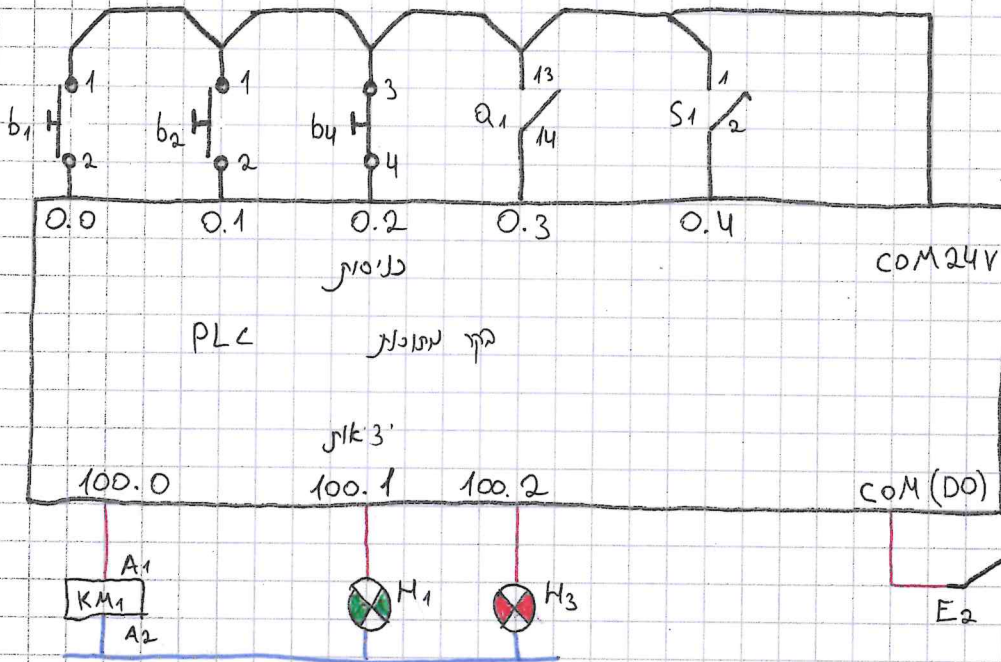 1 1 3 13 1
b1 b2 b4 Q1 S1
14 2
2 2 4
0.0 0.1 0.2 0.3 0.4
COM 24V
כניסות
PLC בקר מתוכנת
יציאות
100.0 100.1 100.2 COM (DO)
A1
KM1 H1 H3
A2 E2